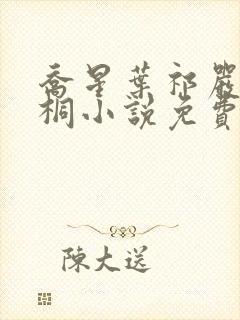 喬星葉祁嚴
桐小說免費
陳大送